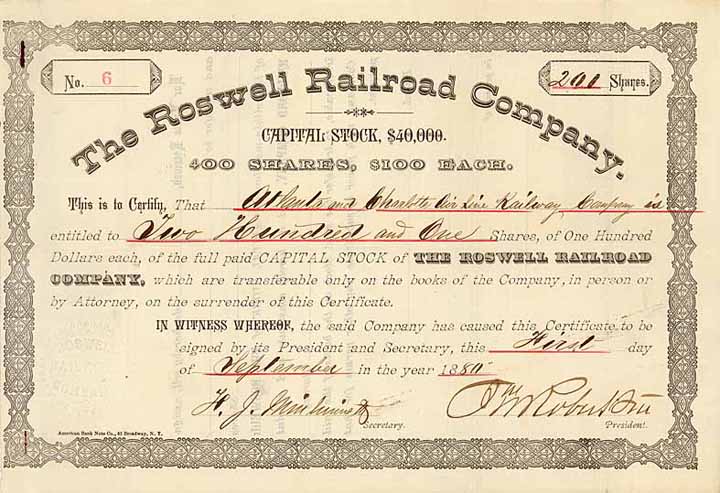 No. 6
201 Shares.
The Roswell Railroad Company.
CAPITAL STOCK, $40,000.
400 SHARES, $100 EACH.
This is to Certify, That Atlanta and Charlotte Air Line Railway Company is
entitled to Two Hundred and One Shares, of One Hundred
Dollars each, of the full paid CAPITAL STOCK of THE ROSWELL RAILROAD
COMPANY, which are transferable only on the books of the Company, in person or
by Attorney, on the surrender of this Certificate.
IN WITNESS WHEREOF, the said Company has caused this Certificate to be
signed by its President and Secretary, this First day
of September in the year 188
H. J.
Secretary.
President.
American Bank Note Co., 61 Broadway, N. Y.